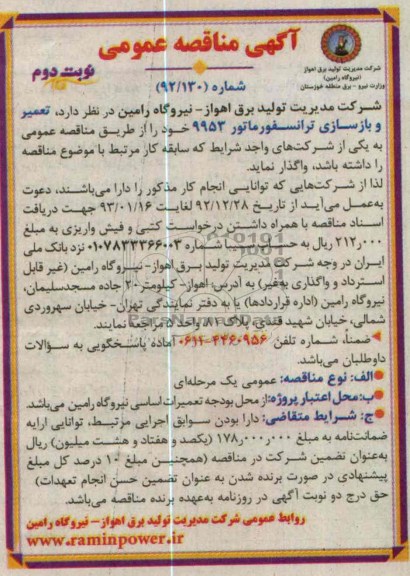 آگهی مناقصه عمومی
شرکت مدیریت تولید برق اهواز
(نیروگاه رامین)
وزارت نیرو - برق منطقه خوزستان
نوبت دوم
شماره (۹۲/۱۳۰)
شرکت مدیریت تولید برق اهواز- نیروگاه رامین در نظر دارد، تعمیر
و بازسازی ترانسفورماتور ۹۹۵۳ خود را از طریق مناقصه عمومی
به یکی از شرکت‌های واجد شرایط که سابقه کار مرتبط با موضوع مناقصه
را داشته باشد، واگذار نماید.
لذا از شرکت‌هایی که توانایی انجام کار مذکور را دارا می‌باشند، دعوت
به‌عمل می‌آید از تاریخ ۹۲/۱۲/۲۸ لغایت ۹۳/۰۱/۱۶ جهت دریافت
اسناد مناقصه با همراه داشتن درخواست کتبی و فیش واریزی به مبلغ
۲۱۲٫۰۰۰ ریال به حساب سیبا شماره ۰۱۰۷۸۳۳۳۶۶۰۰۳ نزد بانک ملی
ایران در وجه شرکت مدیریت تولید برق اهواز- نیروگاه رامین (غیر قابل
استرداد و واگذاری به‌غیر) به آدرس: اهواز- کیلومتر ۲۰ جاده مسجدسلیمان،
نیروگاه رامین (اداره قراردادها) یا به دفتر نمایندگی تهران- خیابان سهروردی
شمالی، خیابان شهید قندی، پلاک ۸۱ واحد ۵ مراجعه نمایند.
ضمناً، شماره تلفن ۴۴۶۰۹۵۶-۰۶۱۱ آماده پاسخگویی به سوالات
داوطلبان می‌باشد.
الف: نوع مناقصه: عمومی یک مرحله‌ای
ب: محل اعتبار پروژه: از محل بودجه تعمیرات اساسی نیروگاه رامین می‌باشد.
ج: شرایط متقاضی: دارا بودن سوابق اجرایی مرتبط، توانایی ارایه
ضمانت‌نامه به مبلغ ۱۷۸٫۰۰۰٫۰۰۰ (یکصد و هفتاد و هشت میلیون) ریال
به‌عنوان تضمین شرکت در مناقصه (همچنین مبلغ ۱۰ درصد کل مبلغ
پیشنهادی در صورت برنده شدن به عنوان تضمین حسن انجام تعهدات)
حق درج دو نوبت آگهی در روزنامه به‌عهده برنده مناقصه می‌باشد.
روابط عمومی شرکت مدیریت تولید برق اهواز- نیروگاه رامین
www.raminpower.ir